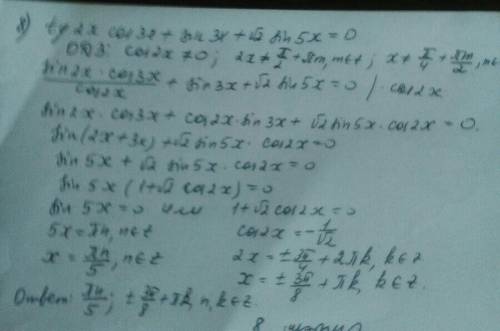 8) tg 2x cos 3x + sin 3x + √2 sin 5x = 0
ОДЗ: cos 2x ≠ 0; 2x ≠ π/2 + πm, m∈z; x ≠ π/4 + πm/2, m∈
sin 2x · cos 3x / cos 2x + sin 3x + √2 sin 5x = 0 / · cos 2x
sin 2x · cos 3x + cos 2x · sin 3x + √2 sin 5x · cos 2x = 0.
sin (2x + 3x) + √2 sin 5x · cos 2x = 0
sin 5x + √2 sin 5x · cos 2x = 0
sin 5x (1 + √2 cos 2x) = 0
sin 5x = 0 или 1 + √2 cos 2x = 0
5x = πn, n∈z cos 2x = - 1/√2
x = πn/5, n∈z 2x = ± 3π/4 + 2πk, k∈z
x = ± 3π/8 + πk, k∈z.
Ответ: πn/5; ± 3π/8 + πk, n, k∈z.
8